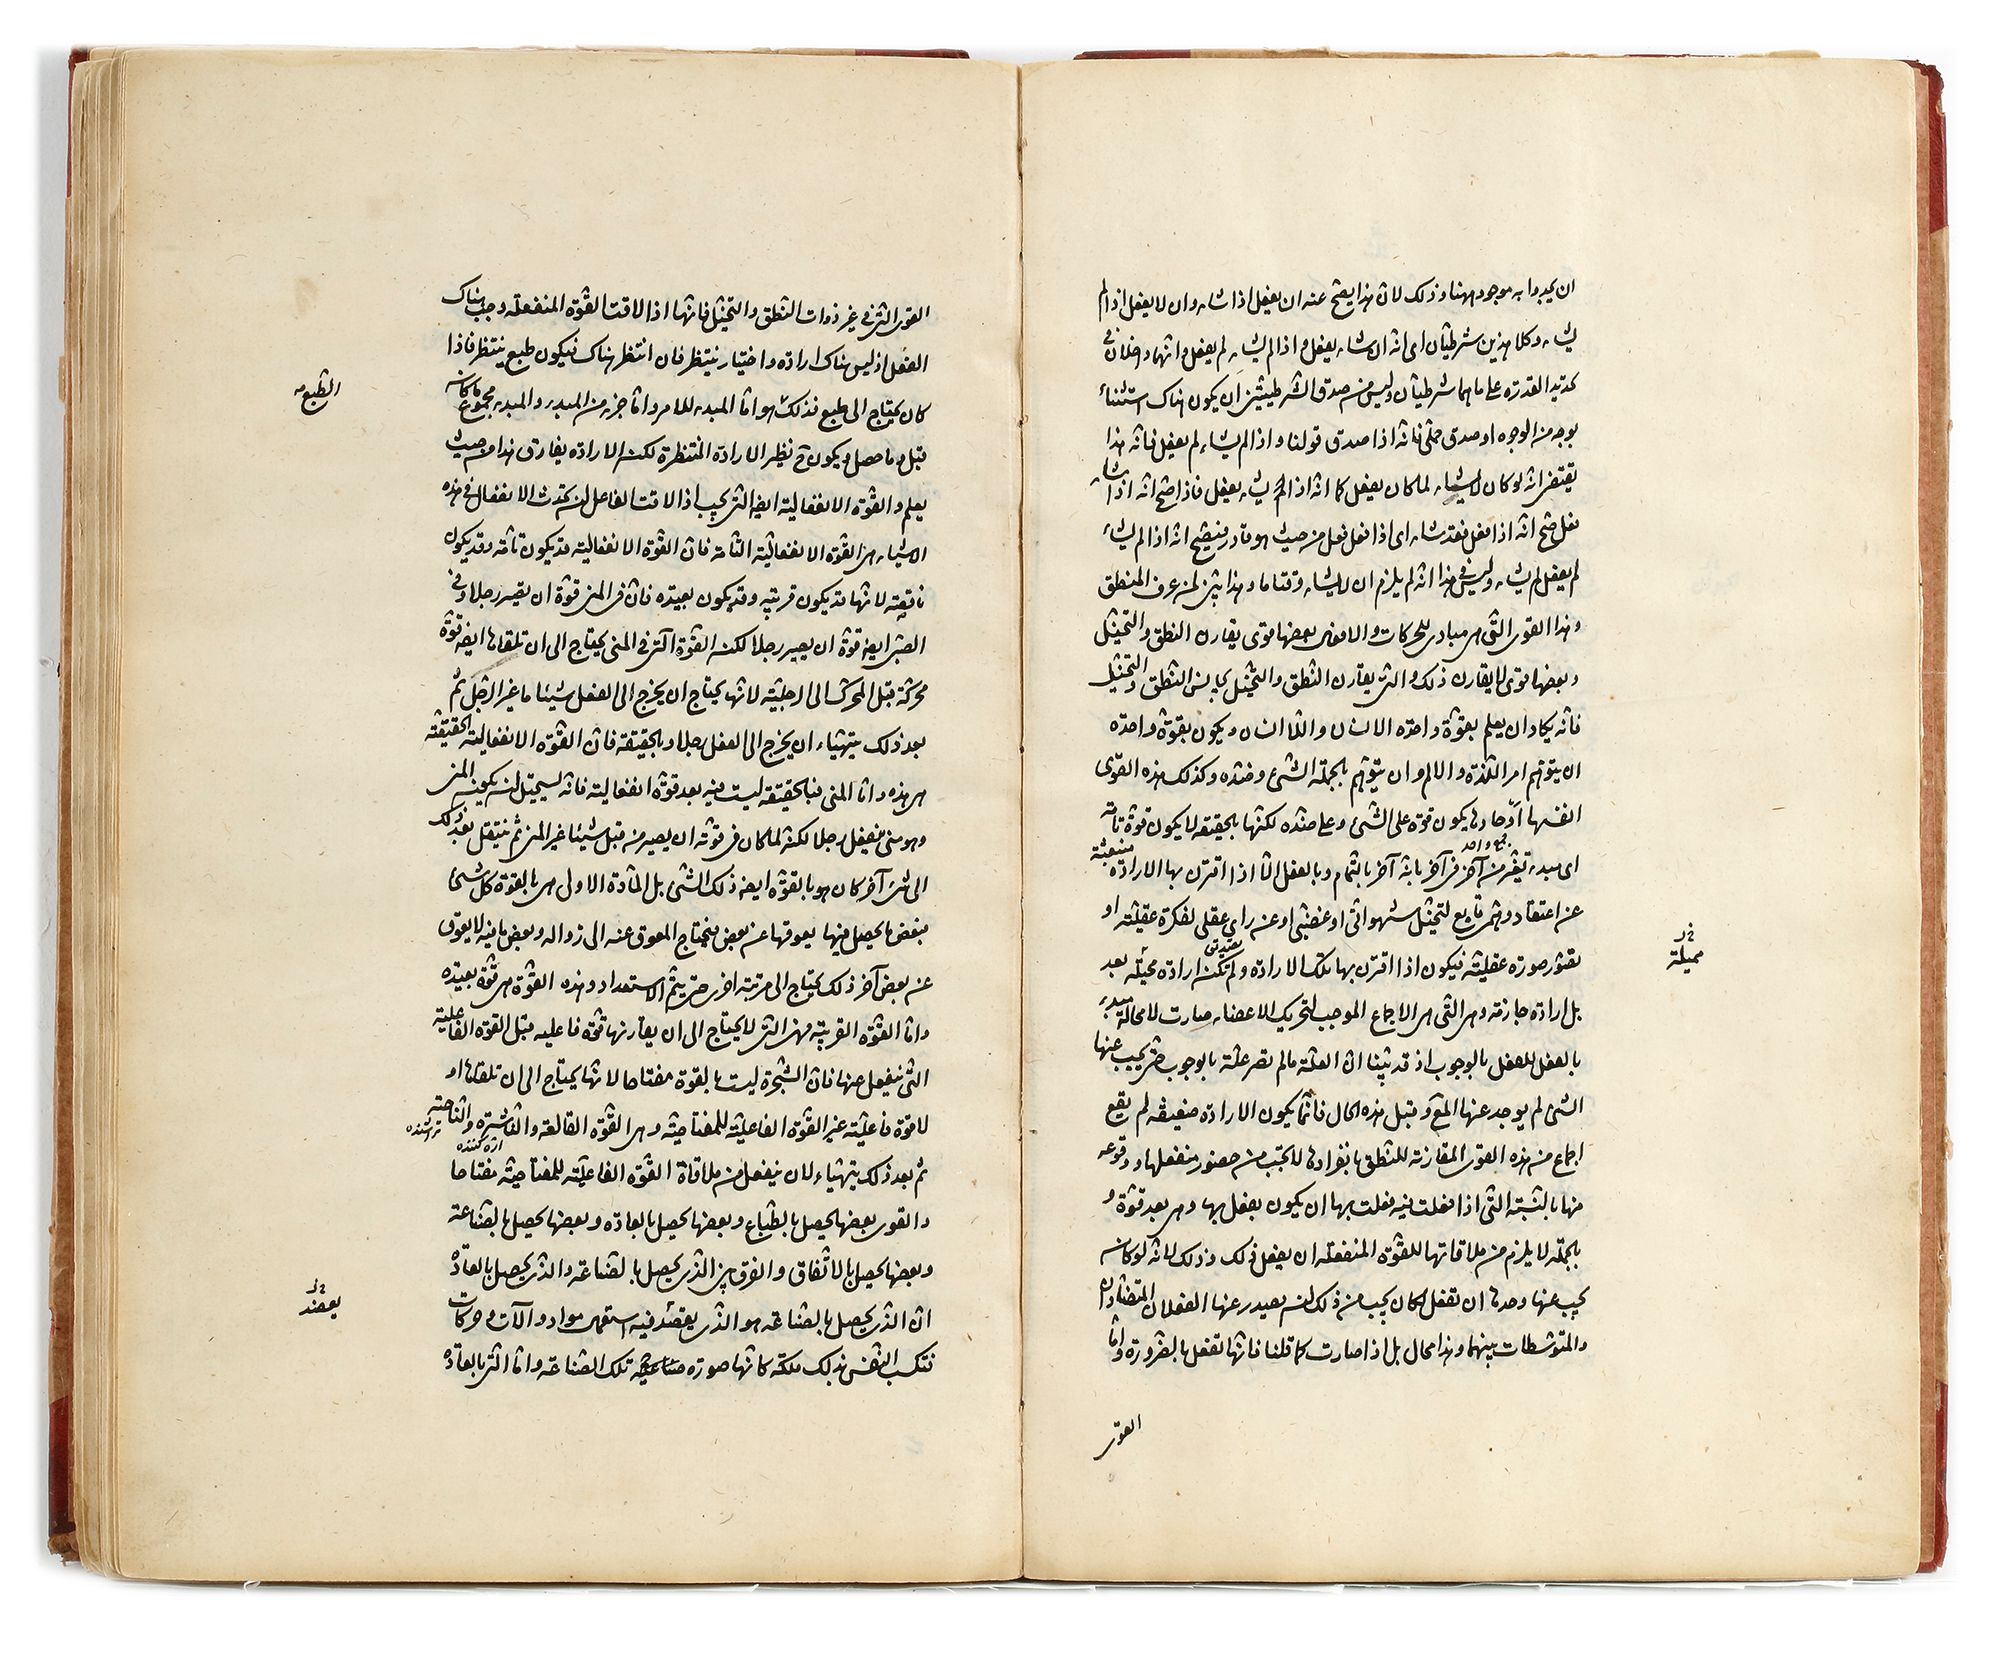 ان يجدوا به موجود ههنا وذلك لان هذا يصح عنه ان يفعل اذا شاء وان لا يفعل اذا لم
يشاء وكلا هذين شرطيان اى انه ان شاء يفعل واذا لم يشاء لم يفعل وانهما داخلان فى
تحديد القدرة على ما هما شرطيان وليس من صدق الشرطيتين ان يكون هناك استثناء
بوجه من الوجوه او صدق حملى فانه اذا صدق قولنا واذا لم يشاء لم يفعل فانه هذا
يقتضى انه لو كان لا يشاء لما كان يفعل كما انه اذا لم يشاء يفعل فاذا صح انه اذا شاء
فعل صح انه اذا فعل فقد شاء اى اذا فعل فعل من حيث هو قادر فيصح انه اذا لم يشاء
لم يفعل لم يشاء وليس فى هذا انه لم يلزم ان لا يشاء وقتا ما وهذا بين لمن عرف المنطق
وهذا القوى التى هى مبادى للحركات والافعال بعضها قوى يقارن النطق والتخيل
وبعضها قوى لا يقارن ذلك والتى يقارن النطق والتخيل يجانس النطق والتخيل
فانه يكاد ان يعلم بقوة واحدة الانسان واللاانسان ويكون بقوة واحدة
ان يتوهم امر اللذة والالم وان يتوهم بالجملة الشئ وضده وكذلك هذه القوى
انفسها آحادها يكون قوة على الشئ وعلى ضده لكنها بالحقيقة لا يكون قوة تامة
جمع واحد
اى مبدء تغير من آخر فى آخر بانه آخر بالتمام وبالفعل الا اذا اقترن بها الارادة منبعثة
عن اعتقاد وهمى تابع لتخيل شهوانى او غضبى او عن راى عقلى لفكرة عقلية او
تصور صورة عقلية فيكون اذا اقترن بها تلك الارادة ولم تكن ارادة مخيلة بعد
بل ارادة جازمة وهى التى هى الاجماع الموجب لتحريك الاعضاء صارت لا محالة مبدء
بالفعل للفعل بالوجوب اذ قد بينا ان العلة ما لم تصر علة بالوجوب حتى يجب عنها
الشئ لم يوجد عنها المع وقبل هذه الحال فانما يكون الارادة ضعيفة لم يقع
اجماع من هذه القوى المقارنة للنطق بانفرادها لا يجب من حضور منفعلها ووقوعه
منها بالنسبة التى اذا فعلت فيه فعلت بها ان يكون يفعل بها وهى بعد قوة و
بالجملة لا يلزم من ملاقاتها للقوة المنفعلة ان يفعل ذلك وذلك لانه لو كان
يجب عنها وحدها ان تفعل لكان يجب من ذلك ان يصدر عنها الفعلان المتضادان
والمتوسطات بينهما وهذا محال بل اذا صارت كما قلنا فانها تفعل بالضرورة واما
القوى
مميلة
القوى التى فى غير ذوات النطق والتخيل فانها اذا لاقت القوة المنفعلة وجب هناك
الفعل اذ ليس هناك ارادة واختيار ينتظر فان انتظر هناك فيكون طبع ينتظر فاذا
كان يحتاج الى طبع فذلك هو اما المبدء للامر واما جزء من المبدء والمبدء مجموع ما كان
قبل وما حصل ويكون ح نظير الارادة المنتظرة لكن الارادة يفارق هذا من حيث
يعلم والقوة الانفعالية ايضا التى يجب اذا لاقت الفاعل ان يحدث الانفعال فى هذه
الاشياء هى القوة الانفعالية التامة فان القوة الانفعالية قد يكون تامة وقد يكون
ناقصة لانها قد يكون قريبة وقد يكون بعيدة فان فى المنى قوة ان يصير رجلا وفى
الصبى ايضا قوة ان يصير رجلا لكن القوة التى فى المنى يحتاج الى ان تلقاها ايضا قوة
محركة قبل المحرك الى الرجلية لانها يحتاج ان يخرج الى الفعل شيئا ما غير الرجل ثم
بعد ذلك يتهياء ان يخرج الى الفعل رجلا وبالحقيقة فان القوة الانفعالية الحقيقية
هى هذه واما المنى فبالحقيقة ليست فيه بعد قوة انفعالية فانه يستحيل ان يكون المنى
وهو منى ينفعل رجلا لكنه لما كان فى قوته ان يصير من قبل شيئا غير المنى ثم ينتقل بعد ذلك
الى شئ آخر كان هو بالقوة ايضا ذلك الشئ بل المادة الاولى هى بالقوة كل شئ
فبعض ما يحصل فيها يعوقها عن بعض فيحتاج المعوق عنه الى زواله وبعض ما فيه لا يعوق
عن بعض آخر ذلك يحتاج الى مرتبة اخرى حتى يتم الاستعداد وهذه القوة هى قوة بعيدة
واما القوة القريبة فهى التى لا يحتاج الى ان يقارنها قوة فاعليه قبل القوة الفاعلية
التى ينفعل عنها فان الشجرة ليست بالقوة مفتاحا لانها يحتاج الى ان تلقاها او
لا قوة فاعلية غير القوة الفاعلية للمفتاحية وهى القوة القالعة والناشرة والناحتة
تراشنده
اره كننده
ثم بعد ذلك يتهياء لان ينفعل من ملاقاة القوة الفاعلية للمفتاحية مفتاحا
والقوى بعضها يحصل بالطباع وبعضها يحصل بالعادة وبعضها يحصل بالصناعة
وبعضها يحصل بالاتفاق والفرق بين الذى يحصل بالصناعة والذى يحصل بالعادة
ان الذى يحصل بالصناعة هو الذى يقصد فيه استعمال مواد وآلات وحركات
فتكسب النفس بذلك ملكة كانها صورة تلك الصناعة واما التى بالعادة
الطبع
يقصد